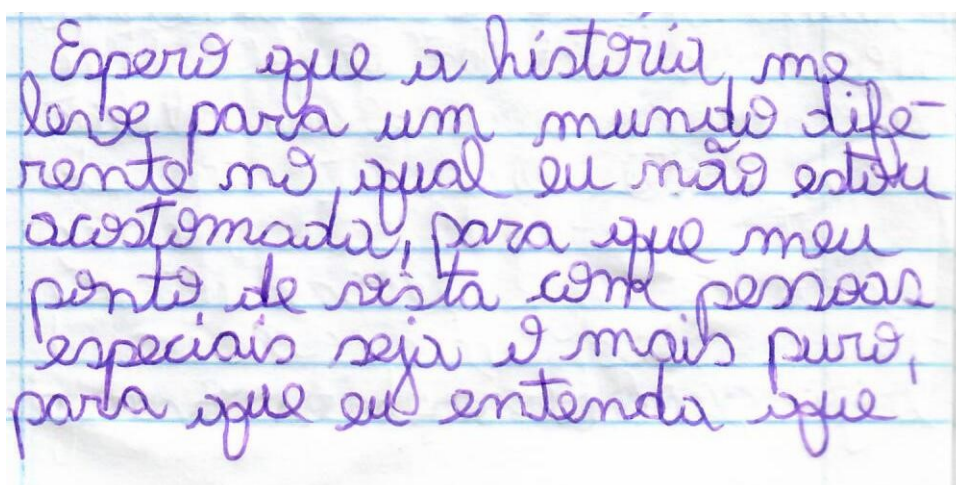 Espero que a história, me
leve para um mundo dife-
rente no qual eu não estou
acostomada, para que meu
ponto de vista com pessoas
especiais seja o mais puro,
para que eu entenda que